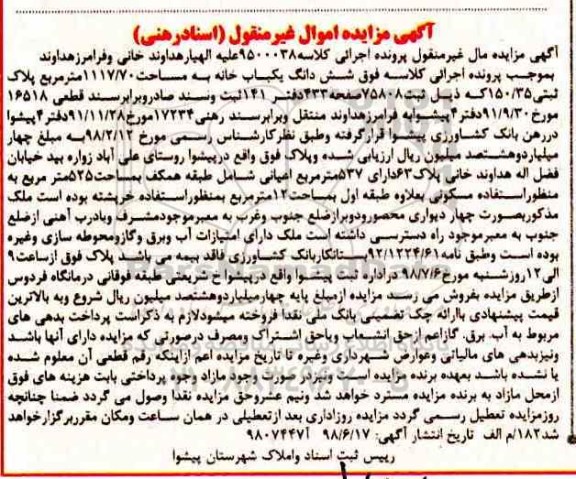 آگهی مزایده اموال غیرمنقول (اسنادرهنی)
آگهی مزایده مال غیرمنقول پرونده اجرائی کلاسه۹۵۰۰۰۳۸علیه الهیارهداوند خانی وفرامرزهداوند
بموجب پرونده اجرائی کلاسه فوق شش دانگ یکباب خانه به مساحت۱۱۱۷/۷۰مترمربع پلاک
ثبتی۱۵۰/۳۵که ذیل ثبت۷۵۸۰۸صفحه۴۳۳دفتر ۱۴۱ثبت وسند صادروبرابرسند قطعی ۱۶۵۱۸
مورخ۹۱/۹/۳۰دفتر۴پیشوابه فرامرزهداوند منتقل وبرابرسند رهنی۱۷۲۳۴مورخ۹۱/۱۱/۲۸دفتر۴پیشوا
دررهن بانک کشاورزی پیشوا قرارگرفته وطبق نظرکارشناس رسمی مورخ ۹۸/۲/۱۲به مبلغ چهار
میلیاردوهشتصد میلیون ریال ارزیابی شده وپلاک فوق واقع درپیشوا روستای علی آباد زواره بید خیابان
فضل اله هداوند خانی پلاک۶۳دارای ۵۳۷مترمربع اعیانی شامل طبقه همکف بمساحت۵۲۵متر مربع به
منظوراستفاده مسکونی بعلاوه طبقه اول بمساحت۱۲مترمربع بمنظوراستفاده خرپشته بوده است ملک
مذکوربصورت چهار دیواری محصورودوبرازضلع جنوب وغرب به معبرموجودمشرف وبادرب آهنی ازضلع
جنوب به معبرموجود راه دسترسی داشته است ملک دارای امتیازات آب وبرق وگازومحوطه سازی وغیره
بوده است وطبق نامه۹۲/۱۲۲۴/۶۱بستانکاربانک کشاورزی فاقد بیمه می باشد پلاک فوق ازساعت۹
الی۱۲روزشنبه مورخ۹۸/۷/۶دراداره ثبت پیشوا واقع درپیشواخ شریعتی طبقه فوقانی درمانگاه فردوس
ازطریق مزایده بفروش می رسد مزایده ازمبلغ پایه چهارمیلیاردوهشتصد میلیون ریال شروع وبه بالاترین
قیمت پیشنهادی باارائه چک تضمینی بانک ملی نقدا فروخته میشودلازم به ذکراست پرداخت بدهی های
مربوط به آب، برق، گازاعم ازحق انشعاب ویاحق اشتراک ومصرف درصورتی که مزایده دارای آنها باشد
ونیزبدهی های مالیاتی وعوارض شهرداری وغیره تا تاریخ مزایده اعم ازاینکه رقم قطعی آن معلوم شده
یا نشده باشد بعهده برنده مزایده است ونیزدر صورت وجود مازاد وجوه پرداختی بابت هزینه های فوق
ازمحل مازاد به برنده مزایده مسترد خواهد شد ونیم عشروحق مزایده نقدا وصول می گردد ضمنا چنانچه
روزمزایده تعطیل رسمی گردد مزایده روزاداری بعد ازتعطیلی در همان ساعت ومکان مقرربرگزارخواهد
شد۱۸۲/م الف  تاریخ انتشار آگهی: ۹۸/۶/۱۷  ۹۸۰۷۴۴۷آ
رییس ثبت اسناد واملاک شهرستان پیشوا